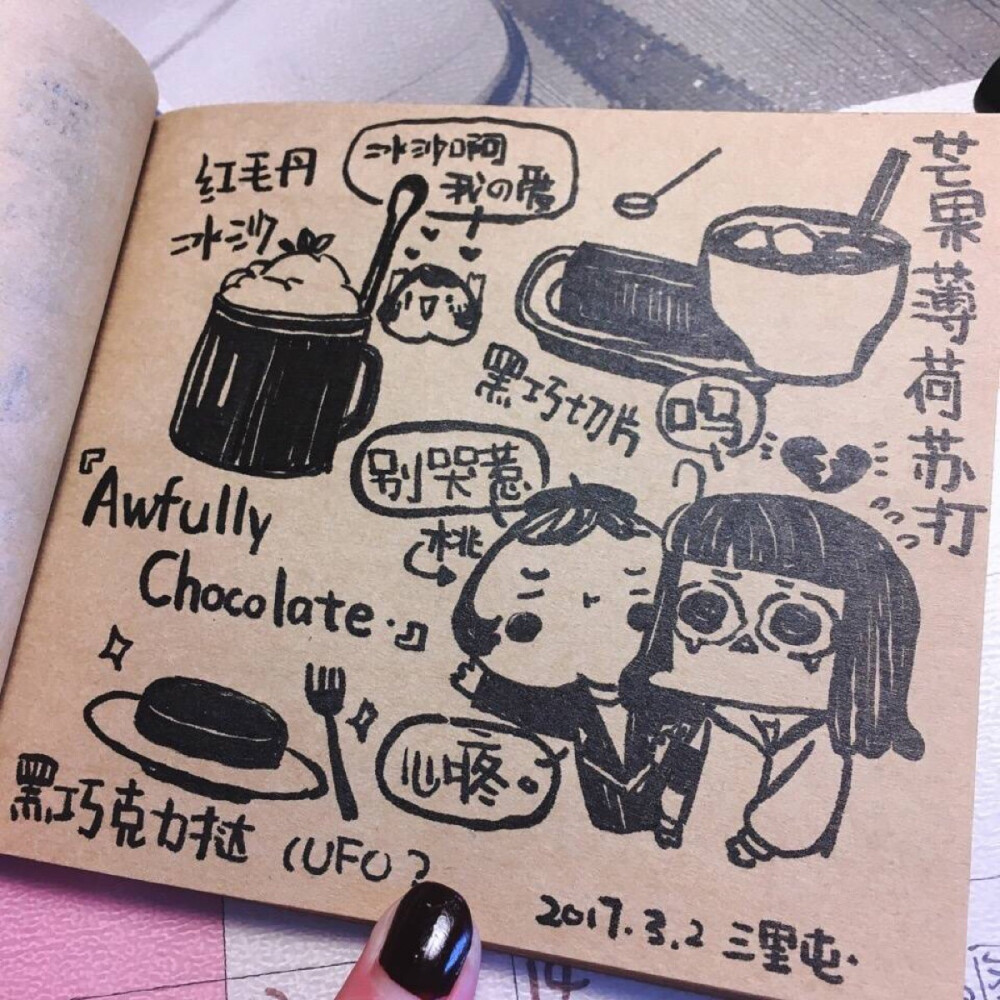 红毛丹
冰沙
冰沙啊
我の爱
芒果薄荷苏打
黑巧切片
呜
别哭惹
桃
『Awfully
Chocolate.』
心疼。
黑巧克力挞 (UFO?
2017.3.2 三里屯.